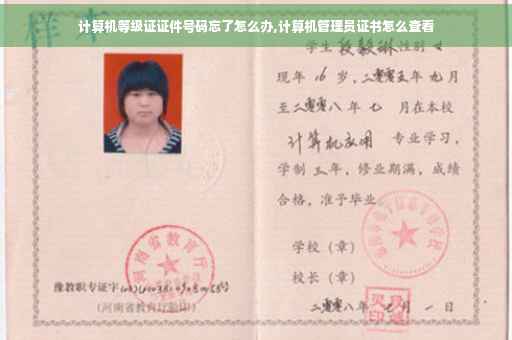 计算机等级证证件号码忘了怎么办,计算机管理员证书怎么查看
样本
学生段毅琳性别女
现年16岁,二零零五年九月
至二零零八年七月在本校
计算机应用 专业学习,
学制三年,修业期满,成绩
合格,准予毕业
学校(章)
校长(章)
二零零八年七月一日
河南省教育厅
豫教职专证字
(河南省教育厅验印)